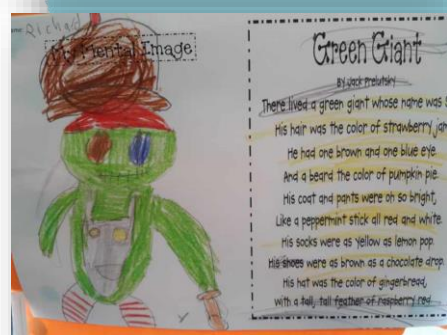 Richa
My Mental Image
Green Giant
By Jack Prelutsky
There lived a green giant whose name was
His hair was the color of strawberry jam
He had one brown and one blue eye
And a beard the color of pumpkin pie.
His coat and pants were oh so bright,
Like a peppermint stick all red and white.
His socks were as yellow as lemon pop.
His shoes were as brown as a chocolate drop.
His hat was the color of gingerbread,
With a tall, tall feather of raspberry red.